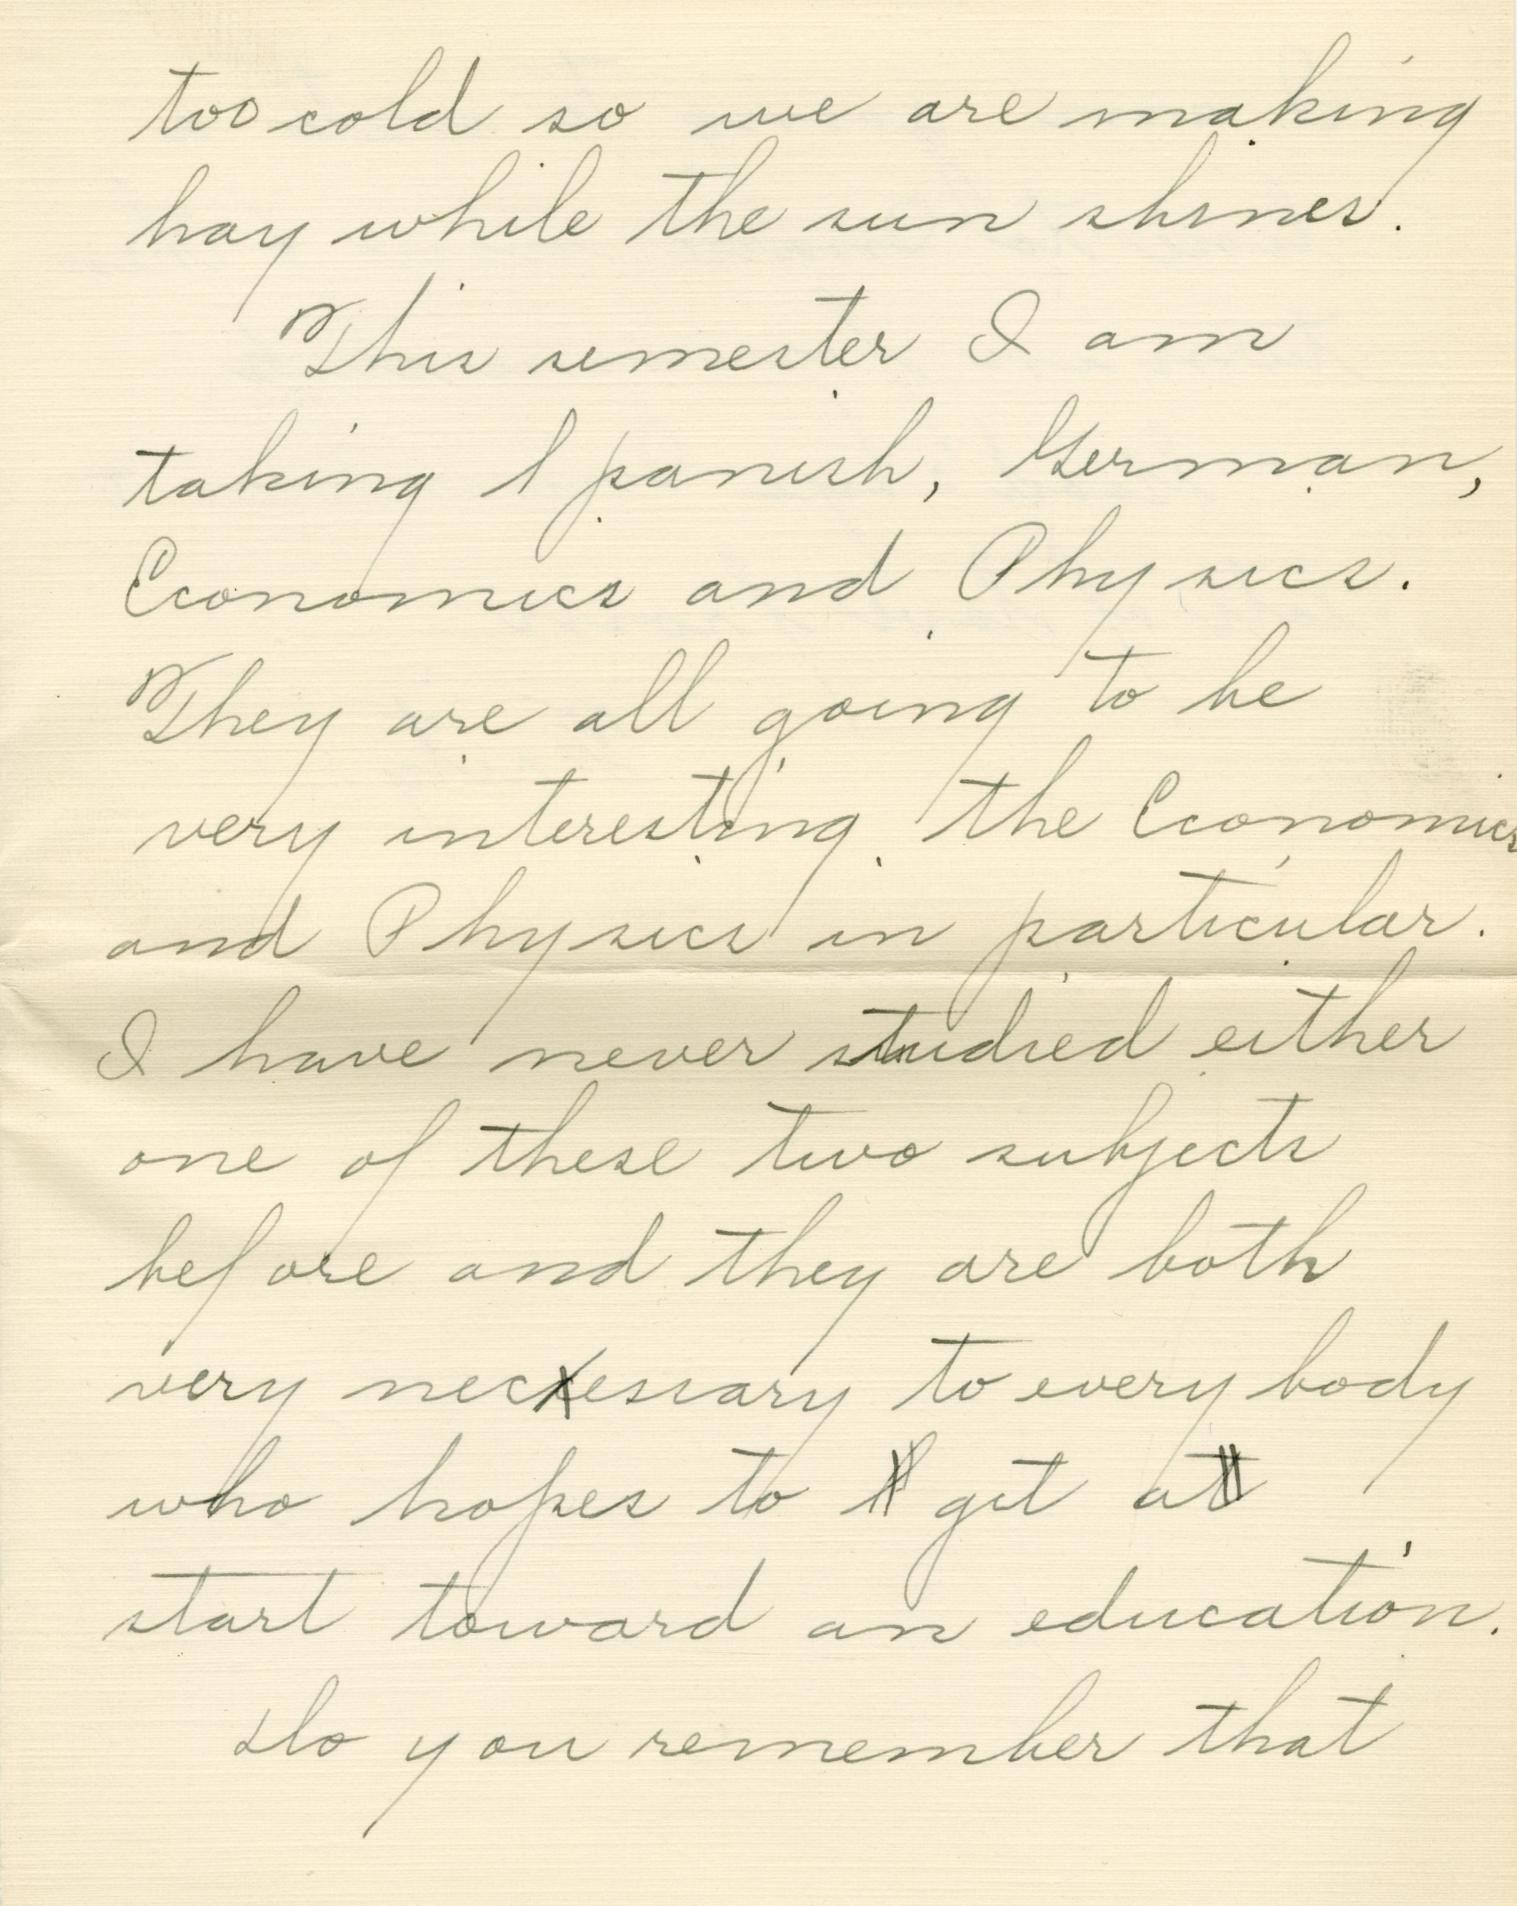 too cold so we are making
hay while the sun shines.
This semester I am
taking Spanish, German,
Economics and Physics.
They are all going to be
very interesting. the Economics
and Physics in particular.
I have never studied either
one of these two subjects
before and they are both
very necessary to every body
who hopes to get a
start toward an education.
Do you remember that